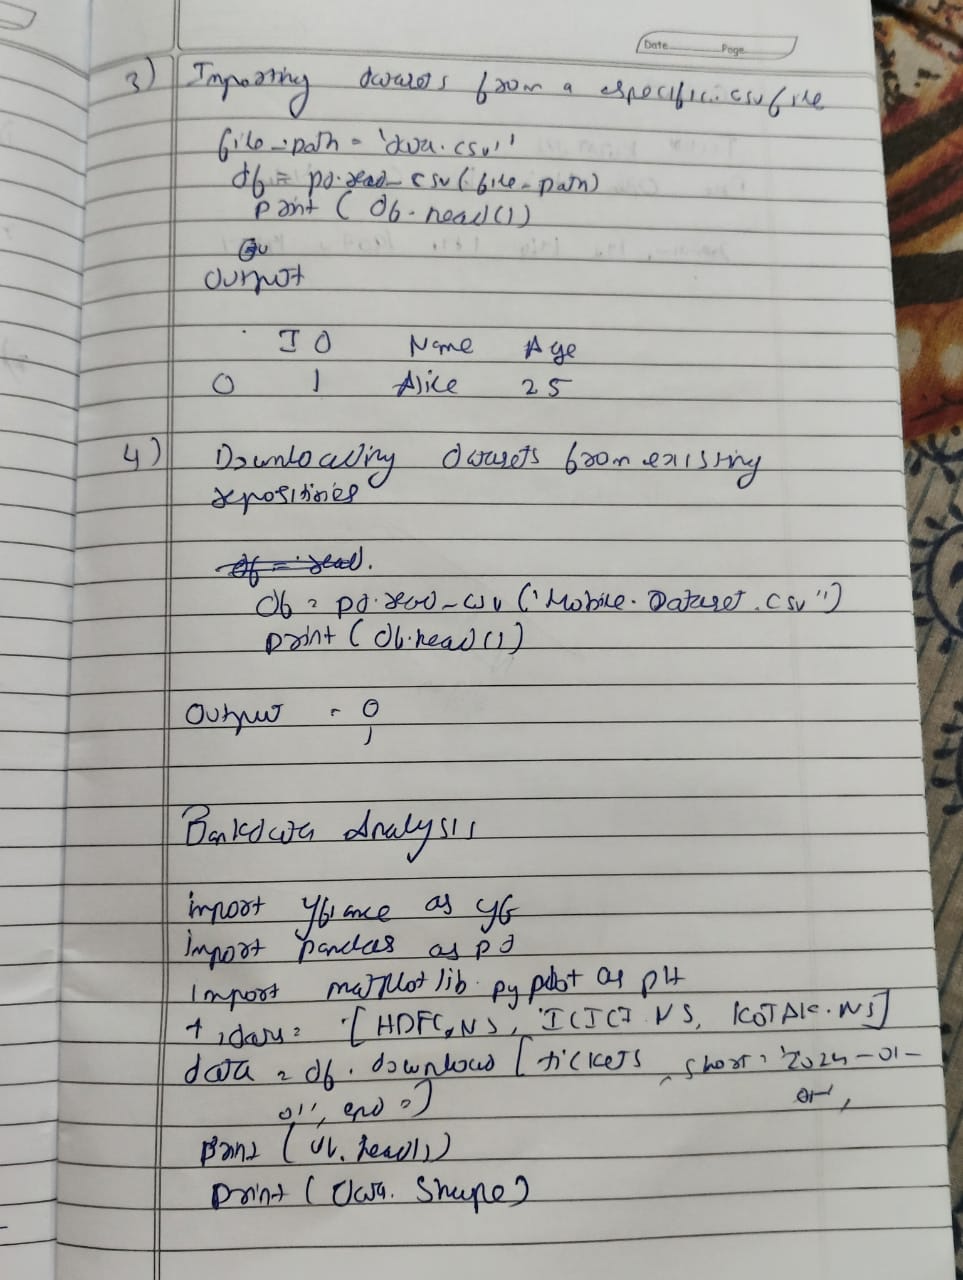 Date Page
3) Importing datasets from a specific csv file
file_path = 'data.csv''
df = pd.read_csv(file_path)
print ( df.head())
Output
ID Name Age
0 1 Alice 25
4) Downloading datasets from existing
repositories
df = read.
df = pd.read_csv ('Mobile. Dataset.csv'')
print ( df.head())
Output = 0
1
Bankdata Analysis
import yfinance as yf
import pandas as pd
import matplotlib. pyplot as plt
= '[ HDFC.NS, 'ICICI.NS, KOTAK.NS]
data = df. download [ tickets , start = '2024-01-
01'', end = ]
print ( df. head())
print ( data. shape)